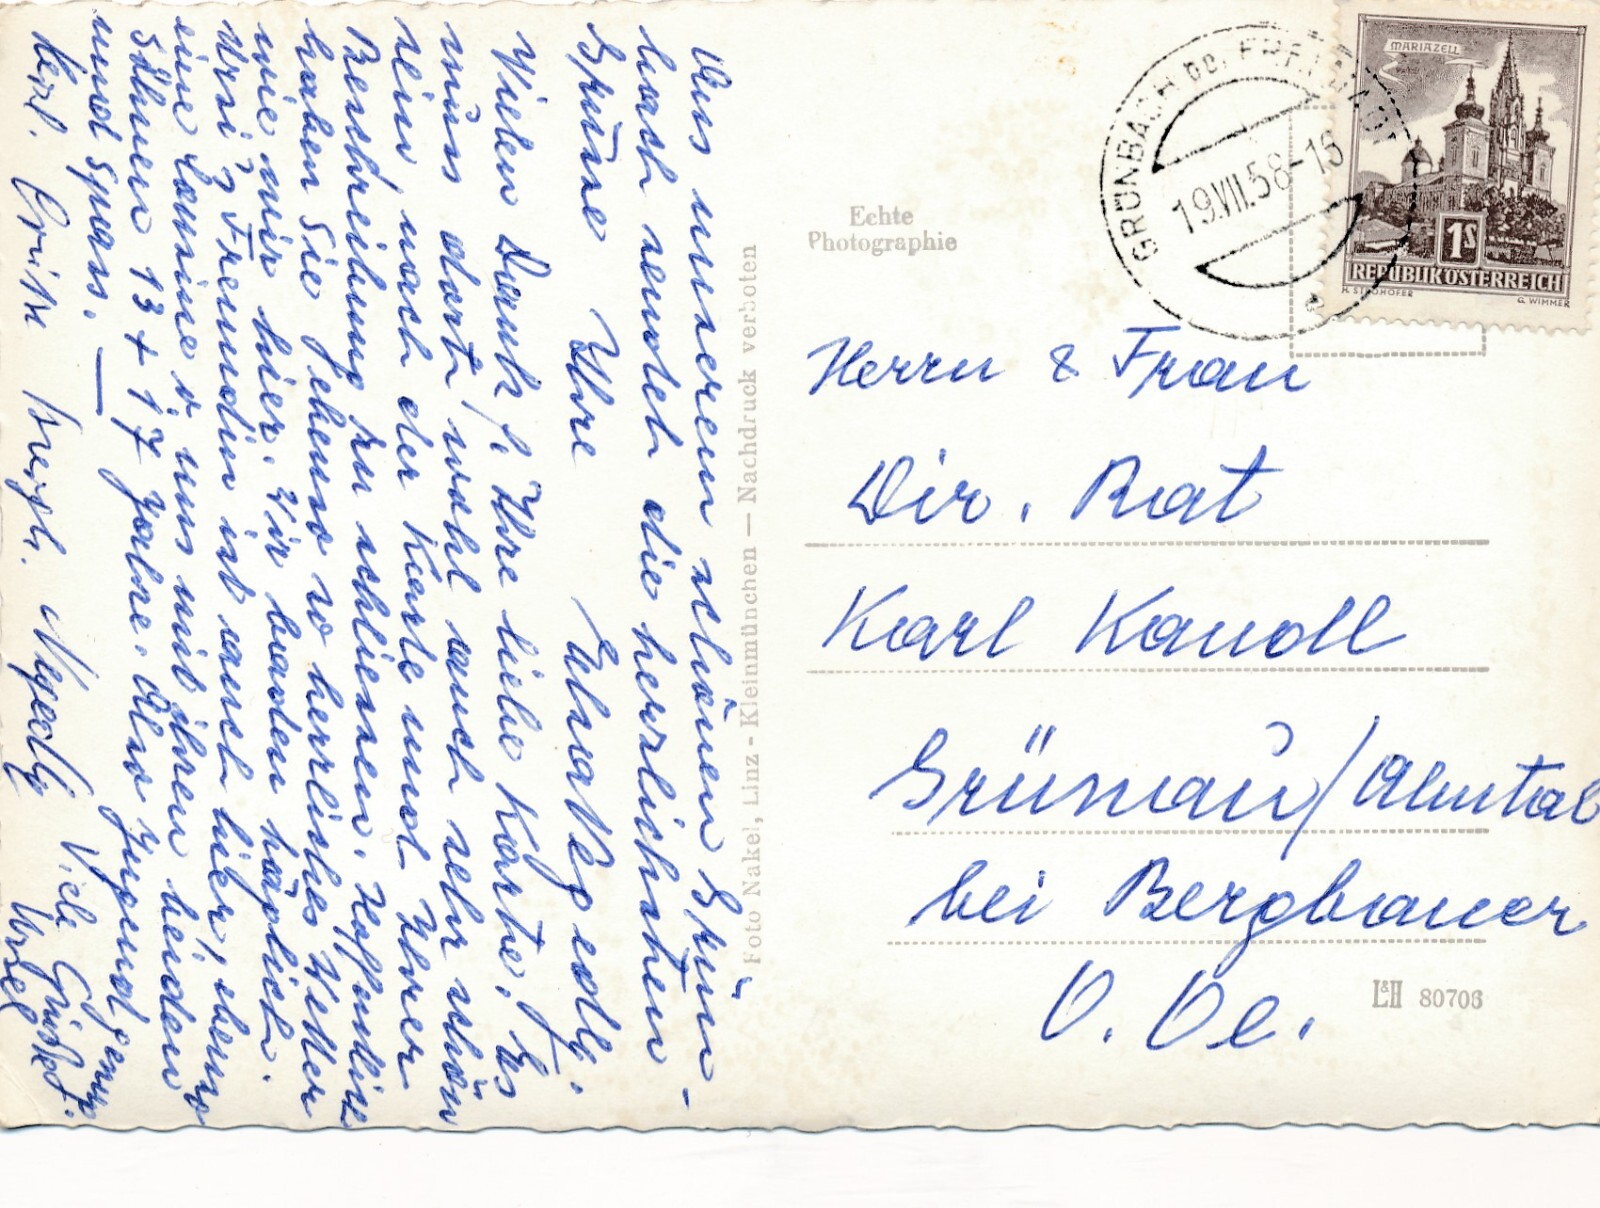 Aus unserem schönen Grün-
bach sendet die herzlichsten
Grüsse Ihre Elsa Negedly.
Vielen Dank f. Ihre liebe Karte. Es
muss dort wohl auch sehr schön
sein, nach der Karte und Ihrer
Beschreibung zu schliessen. Hoffentlich
haben Sie ebenso herrliches Wetter
wie wir hier. Wir baden täglich.
Ursi's Freundin ist auch hier, ebenso
eine Cousine v. uns mit ihren beiden
Söhnen 13 + 17 Jahre. Also Jugend genug
und Spass. —
herzl. Grüße Negedly
Viele Grüße
Ursel
Echte
Photographie
Foto Nakel, Linz - Kleinmünchen — Nachdruck verboten
GRÜNBACH BE. FREISTADT
19.VII.58-16
MARIAZELL
1S
REPUBLIK ÖSTERREICH
H. STROHOFER
G. WIMMER
Herrn & Frau
Dir. Rat
Karl Kandl
Grünau/Almtal
bei Bergbauer
O. Oe.
L&H 80706